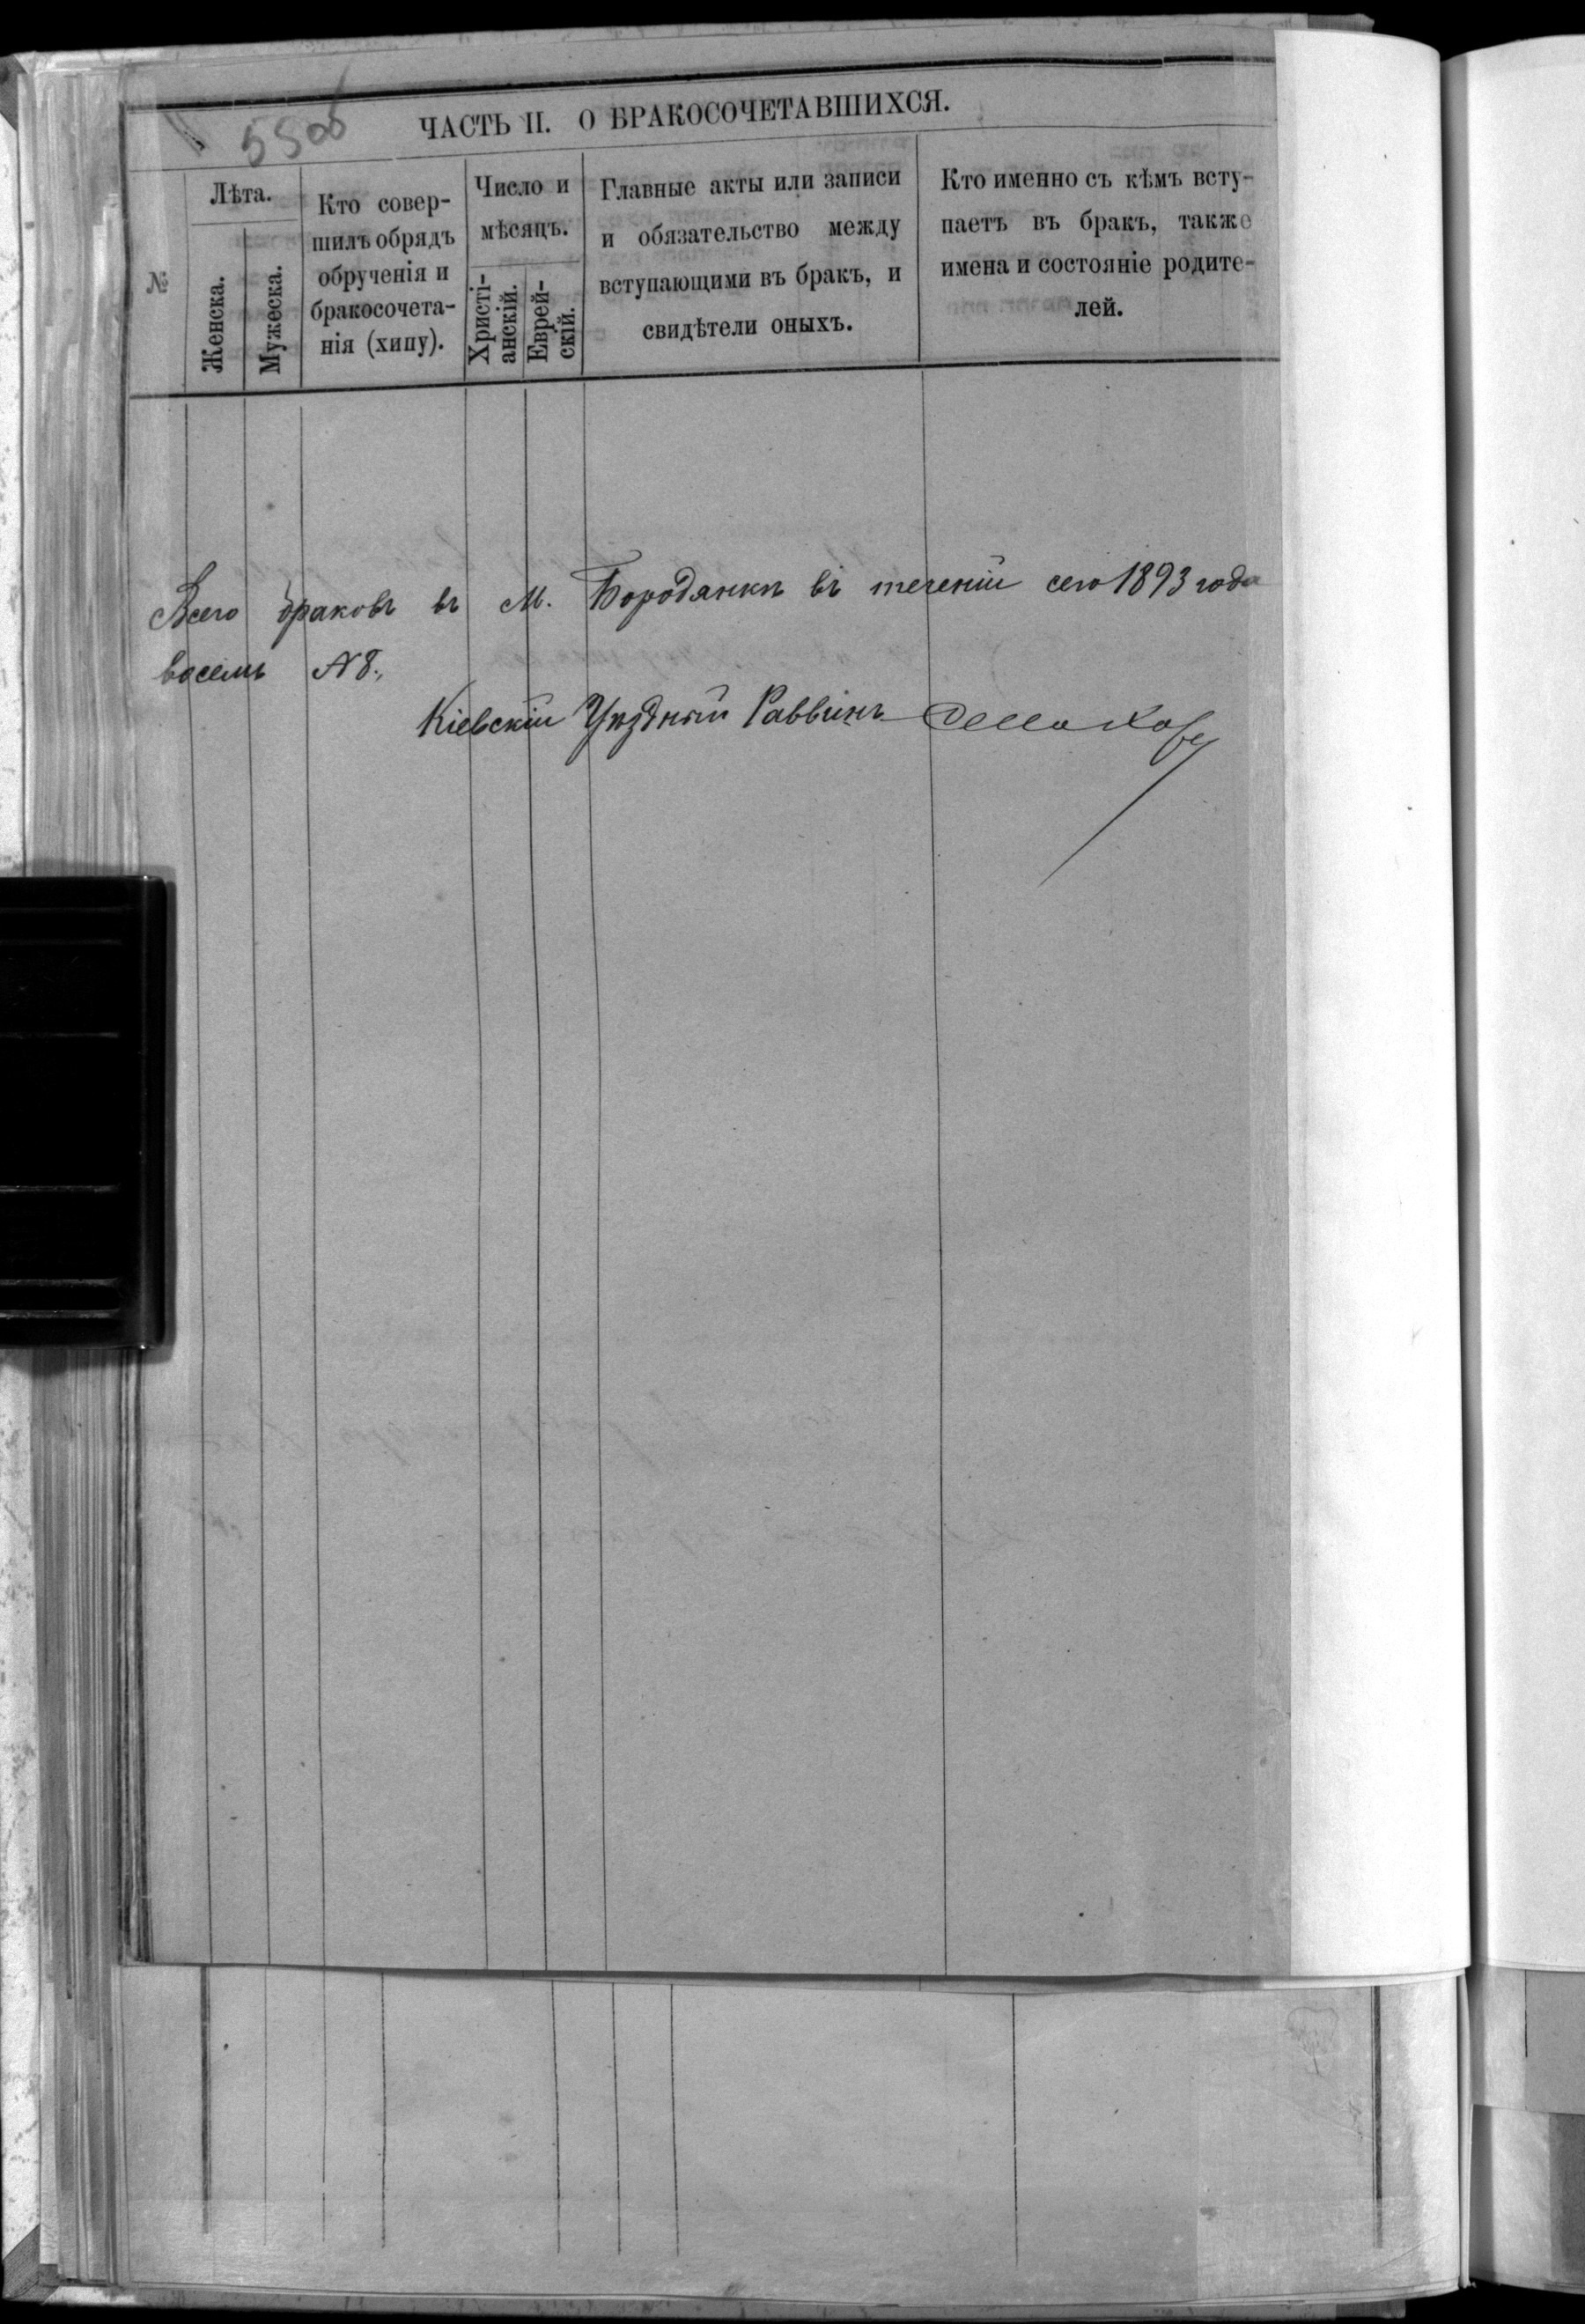 550б
ЧАСТЬ II. О БРАКОСОЧЕТАВШИХСЯ.
№
Лѣта.
Женска.
Мужеска.
Кто совер-
шилъ обрядъ
обрученія и
бракосочета-
нія (хипу).
Число и
мѣсяцъ.
Христі-
анскій.
Еврей-
скій.
Главные акты или записи
и обязательство между
вступающими въ бракъ, и
свидѣтели оныхъ.
Кто именно съ кѣмъ всту-
паетъ въ бракъ, также
имена и состояніе родите-
лей.
Всего браковъ въ М. Бородянкѣ въ теченіи сего 1893 года
восемь №8.,
Кіевскій Уѣздный Раввинъ